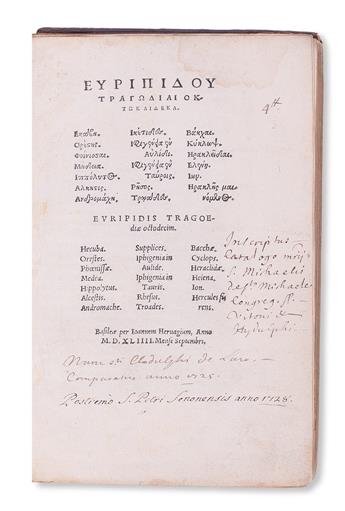 ΕΥΡΙΠΙΔΟΥ
ΤΡΑΓΩΔΙΑΙ ΟΚ-
ΤΩΚΑΙΔΕΚΑ.
Ἑκάβη. Ἱκέτιδες. Βάκχαι.
Ὀρέστης. Ἰφιγένεια ἡ ἐν Κύκλωψ.
Φοίνισσαι. Αὐλίδι. Ἡρακλεῖδαι.
Μήδεια. Ἰφιγένεια ἡ ἐν Ἑλένη.
Ἱππόλυτος. Ταύροις. Ἴων.
Ἄλκηστις. Ῥῆσος. Ἡρακλῆς μαι-
Ἀνδρομάχη. Τρῳάδες. νόμενος.
EVRIPIDIS TRAGOE-
diæ octodecim.
Hecuba. Supplices. Bacchæ.
Orestes. Iphigenia in Cyclops.
Phœnissæ. Aulide. Heraclidæ.
Medea. Iphigenia in Helena.
Hippolytus. Tauris. Ion.
Alcestis. Rhesus. Hercules fu
Andromache. Troades. rens.
Inscriptus
Catalogo
S. Michaelis
Michaele
Congreg.
Vitoni &
Hydulphi.
Basileæ per Ioannem Heruagium, Anno
M. D. XLIIII. Mense Septembri.
Nunc
Comparatus anno 1725.
Postremo S. Petri Senonensis anno 1728.